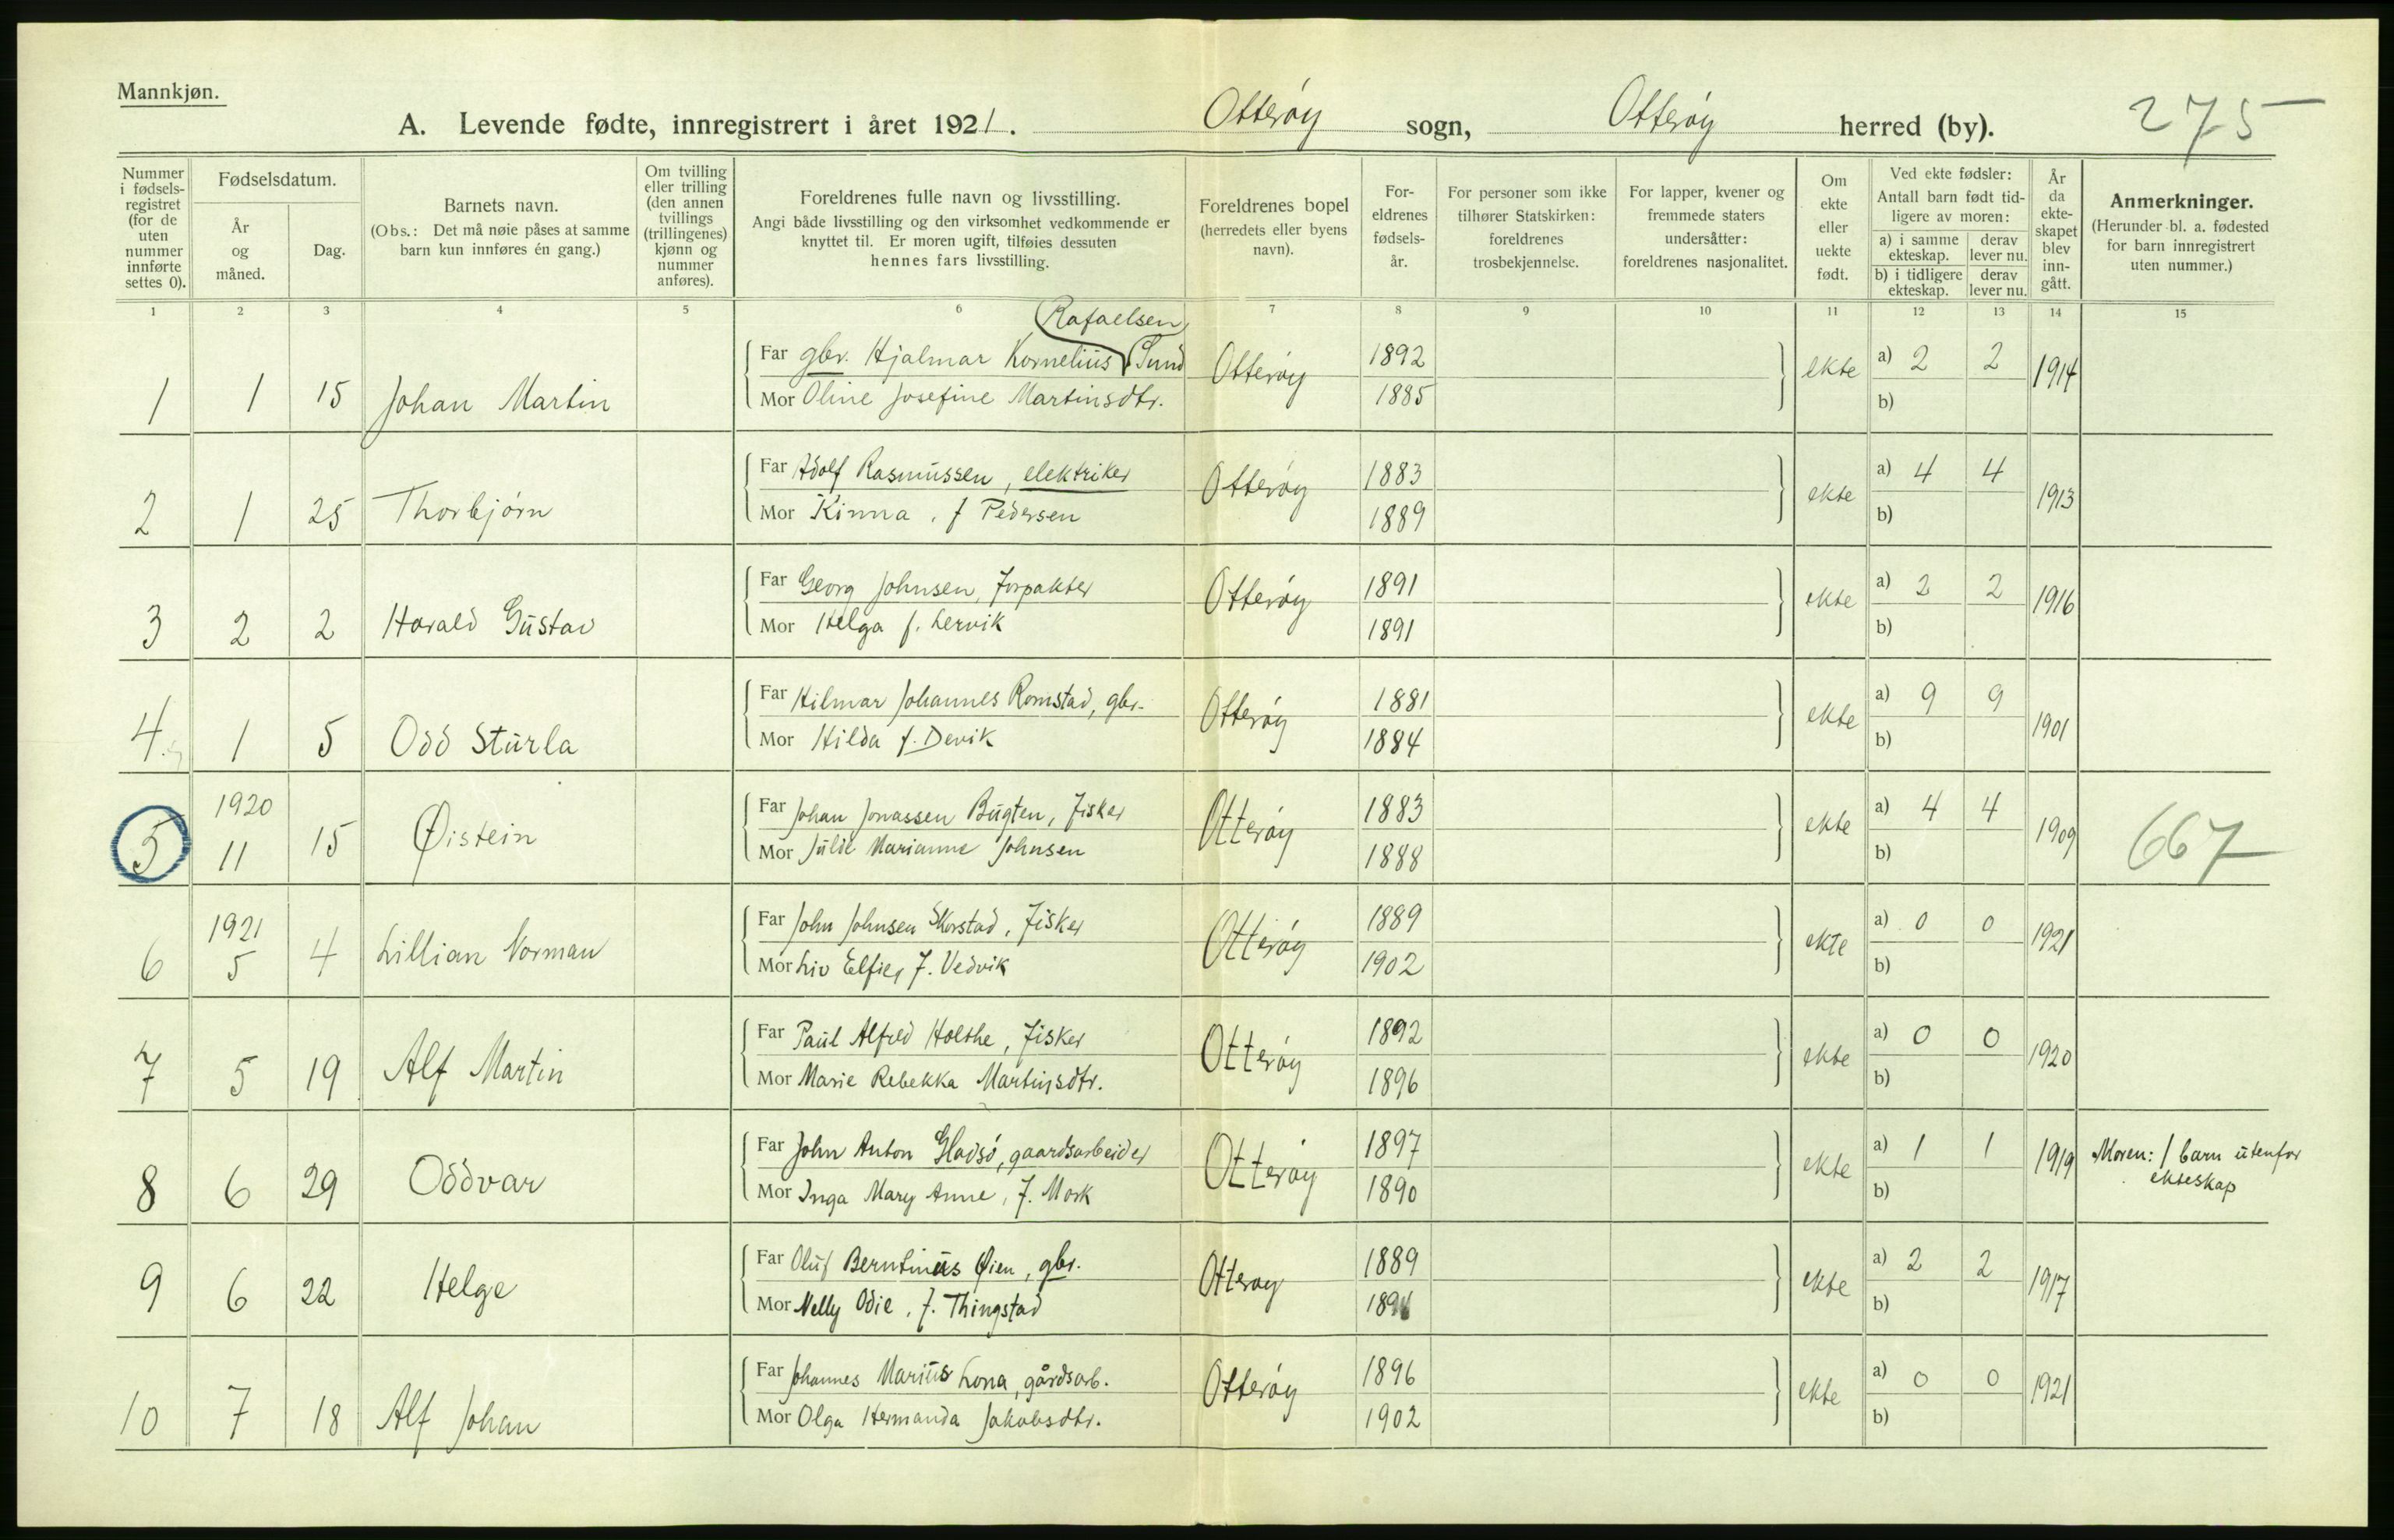 Mannkjøn.
A. Levende fødte, innregistrert i året 1921. Otterøy sogn, Otterøy herred (by). 275
Nummer i fødsels-registret (for de uten nummer innførte settes 0).
Fødselsdatum.
År og måned.
Dag.
Barnets navn.
(Obs.: Det må nøie påses at samme barn kun innføres én gang.)
Om tvilling eller trilling (den annen tvillings (trillingenes) kjønn og nummer anføres).
Foreldrenes fulle navn og livsstilling.
Angi både livsstilling og den virksomhet vedkommende er knyttet til. Er moren ugift, tilføies dessuten hennes fars livsstilling.
Foreldrenes bopel (herredets eller byens navn).
For-eldrenes fødsels-år.
For personer som ikke tilhører Statskirken: foreldrenes trosbekjennelse.
For lapper, kvener og fremmede staters undersåtter: foreldrenes nasjonalitet.
Om ekte eller uekte født.
Ved ekte fødsler:
Antall barn født tid-ligere av moren:
a) i samme ekteskap. derav lever nu.
b) i tidligere ekteskap. derav lever nu.
År da ekte-skapet blev inn-gått.
Anmerkninger.
(Herunder bl. a. fødested for barn innregistrert uten nummer.)
1 2 3 4 5 6 7 8 9 10 11 12 13 14 15
Rafaelsen
Far gbr. Hjalmar Kornelius Sund 1892 a) 2 2
1 1 15 Johan Martin Otterøy ekte 1914
Mor Oline Josefine Martinsdtr. 1885 b)
Far Adolf Rasmussen, elektriker 1883 a) 4 4
2 1 25 Thorbjørn Otterøy ekte 1913
Mor Kinna, f Pedersen 1889 b)
Far Georg Johnsen, Forpakter 1891 a) 2 2
3 2 2 Harald Gustav Otterøy ekte 1916
Mor Helga f. Lervik 1891 b)
Far Hilmar Johannes Romstad, gbr. 1881 a) 9 9
4 1 5 Odd Sturla Otterøy ekte 1901
Mor Hilda f. Devik 1884 b)
1920 Far Johan Jonassen Bugten, Fisker 1883 a) 4 4
5 11 15 Øistein Otterøy ekte 1909 667
Mor Julie Marianne Johnsen 1888 b)
1921 Far John Johnsen Skorstad, Fisker 1889 a) 0 0
6 5 4 Lillian Norman Otterøy ekte 1921
Mor Liv Elfie, F. Vedvik 1902 b)
Far Paul Alfred Holthe, Fisker 1892 a) 0 0
7 5 19 Alf Martin Otterøy ekte 1920
Mor Marie Rebekka Martinsdtr. 1896 b)
Far John Anton Gladsø, gaardsarbeider 1897 a) 1 1
8 6 29 Oddvar Otterøy ekte 1919 Moren: 1 barn utenfor ekteskap
Mor Inga Mary Anne, F. Mork 1890 b)
Far Oluf Berntinus Øien, gbr. 1889 a) 2 2
9 6 22 Helge Otterøy ekte 1917
Mor Nelly Odie, f. Thingstad b)
Far Johannes Marius Lona, gårdsarb. 1896 a) 0 0
10 7 18 Alf Johan Otterøy ekte 1921
Mor Olga Hermanda Jakobsdtr. 1902 b)